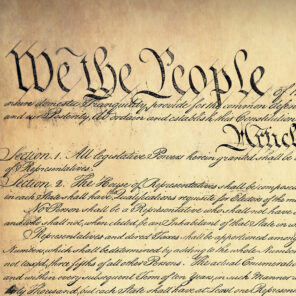 We the People of th
insure domestic Tranquility, provide for the common defence
and our Posterity, do ordain and establish this Constitution
Articl
Section. 1. All legislative Powers herein granted shall be
of Representatives.
Section. 2. The House of Representatives shall be compose
in each State shall have Qualifications requisite for Electors of the mo
No Person shall be a Representative who shall not have
and who shall not, when elected, be an Inhabitant of that State in w
Representatives and direct Taxes shall be apportioned among
Numbers, which shall be determined by adding to the whole Numbe
not taxed, three fifths of all other Persons. The actual Enumerati
and within every subsequent Term of ten Years, in such Manner a
thirty Thousand, but each State shall have at Least one Represen